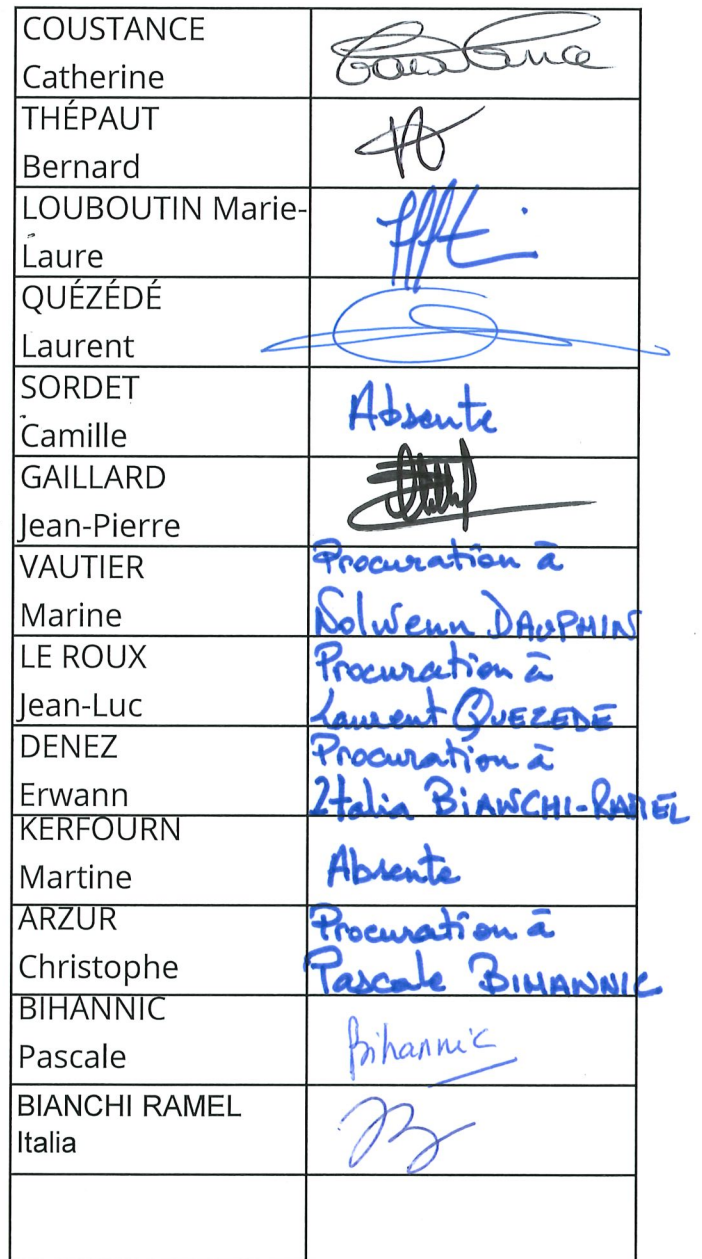 COUSTANCE
Catherine
Coustance
THÉPAUT
Bernard
LOUBOUTIN Marie-
Laure
QUÉZÉDÉ
Laurent
SORDET
Camille
Absente
GAILLARD
Jean-Pierre
VAUTIER
Marine
Procuration à
Solwenn DAUPHIN
LE ROUX
Jean-Luc
Procuration à
Laurent QUEZEDE
DENEZ
Erwann
Procuration à
Italia BIANCHI-RAMEL
KERFOURN
Martine
Absente
ARZUR
Christophe
Procuration à
Pascale BIHANNIC
BIHANNIC
Pascale
Bihannic
BIANCHI RAMEL
Italia